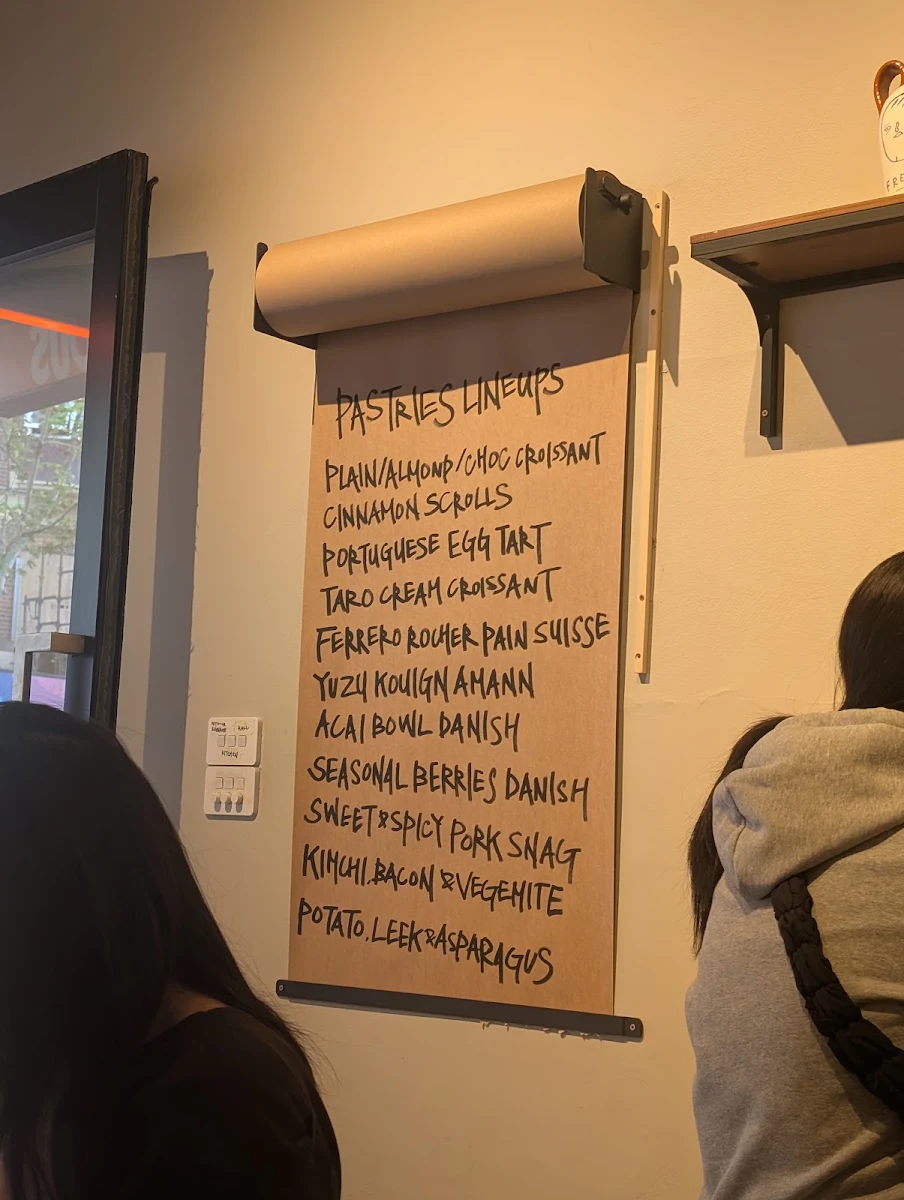 PASTRIES LINEUPS
PLAIN/ALMOND/CHOC CROISSANT
CINNAMON SCROLLS
PORTUGUESE EGG TART
TARO CREAM CROISSANT
FERRERO ROCHER PAIN SUISSE
YUZU KOUIGN AMANN
ACAI BOWL DANISH
SEASONAL BERRIES DANISH
SWEET & SPICY PORK SNAG
KIMCHI, BACON & VEGEMITE
POTATO, LEEK & ASPARAGUS